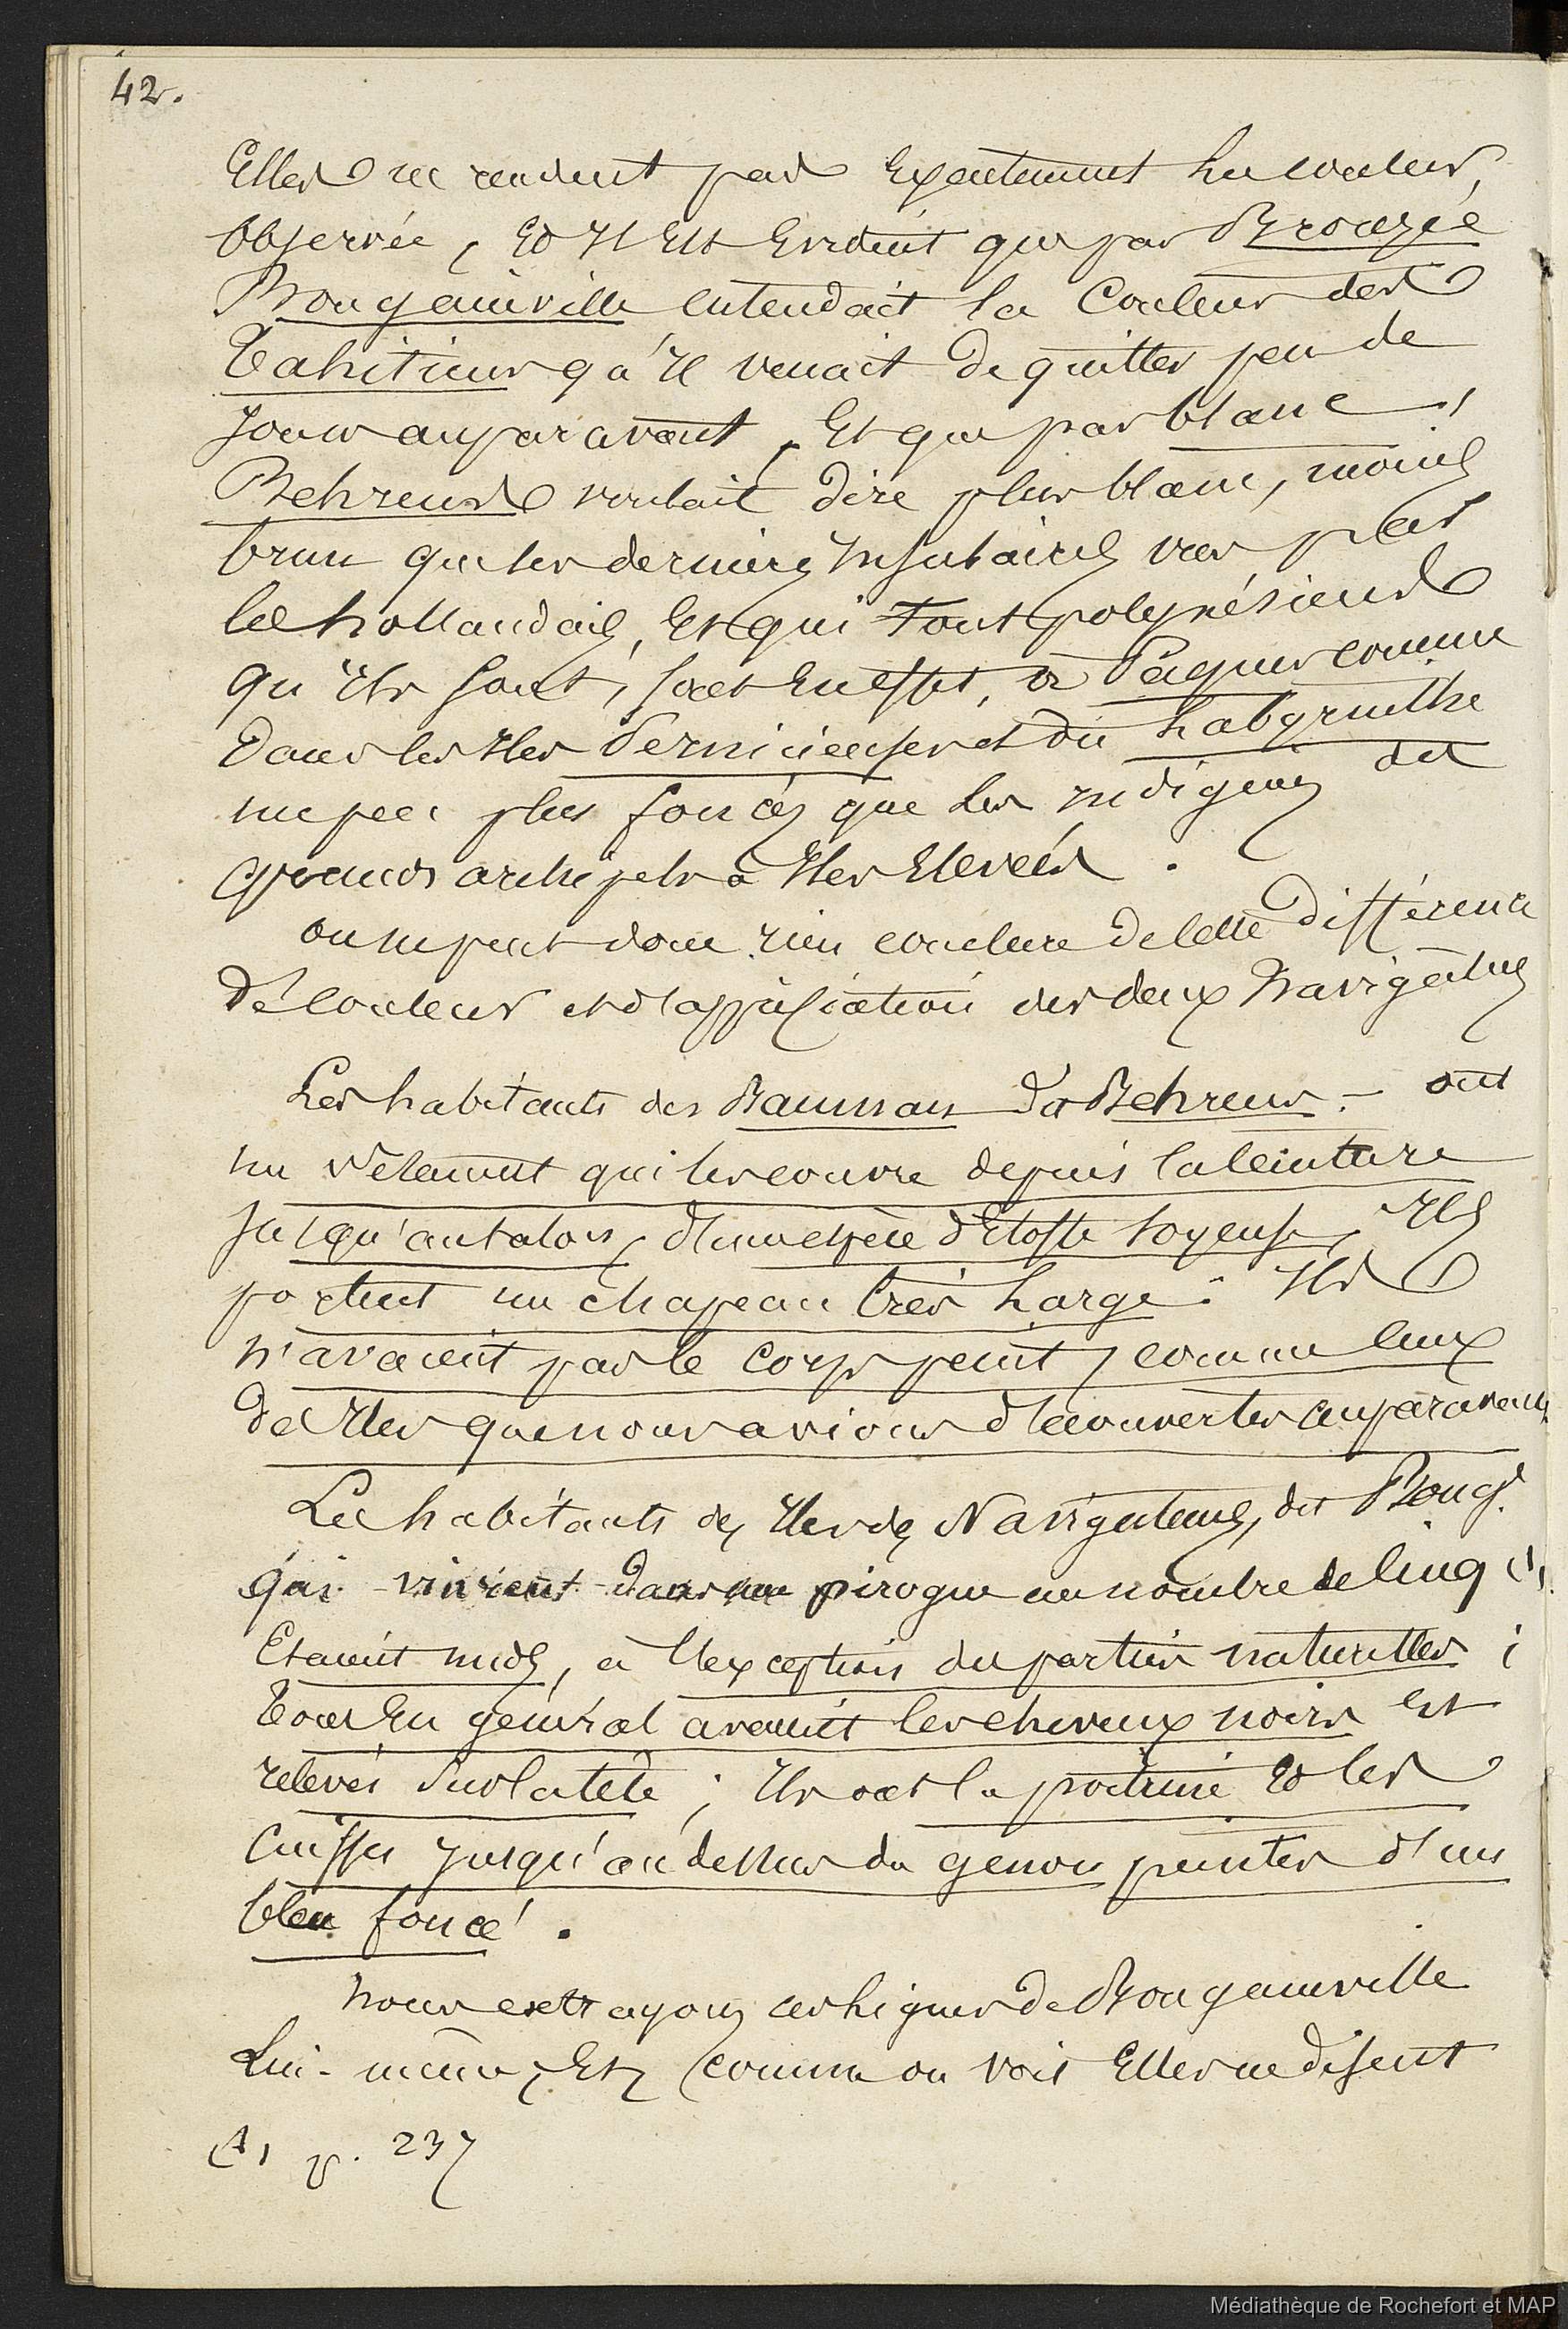 42.
Elles ne rendent pas Exactement la couleur,
Observée, Et Il Est Evident que par Bronzée
Bougainville entendait la Couleur des
Tahitiens qu'Il venait de quitter peu de
jours auparavant, Et que par blanc,
Behrens voulait dire plus blanc, moins
brun que les derniers Insulaires vus par
les hollandais, Et qui Tout polynésiens
qu'Ils sont, sont En effet, à Pâques comme
dans les Iles Pernicieuses et du Labyrinthe
un peu plus foncés que les Indigènes des
grands archipels à Iles Elevées.
on ne peut donc rien conclure de cette différence
de couleur et d'appréciation des deux Navigateurs
Les habitants des Bauman de Behrens - ont
un vêtement qui les couvre depuis la ceinture
jusqu'aux talons, d'une espèce d'Etoffe soyeuse, Ils
portent un chapeau très large. Ils
n'avaient pas le corps peint, comme ceux
des Iles que nous avions découvertes auparavant.
Les habitants des Iles des Navigateurs, dit Boug.
qui vinrent dans une pirogue au nombre de cinq (1)
Etaient nuds, à l'exception des parties naturelles ;
Tous En général avaient les cheveux noirs Et
relevés sur la tête ; Ils ont la poitrine Et les
cuisses jusqu'au dessus du genou peintes d'un
bleu foncé.
Nous extrayons ces lignes de Bougainville
Lui-même, Et, comme on voit Elles ne disent
(1) p. 237
Médiathèque de Rochefort et MAP